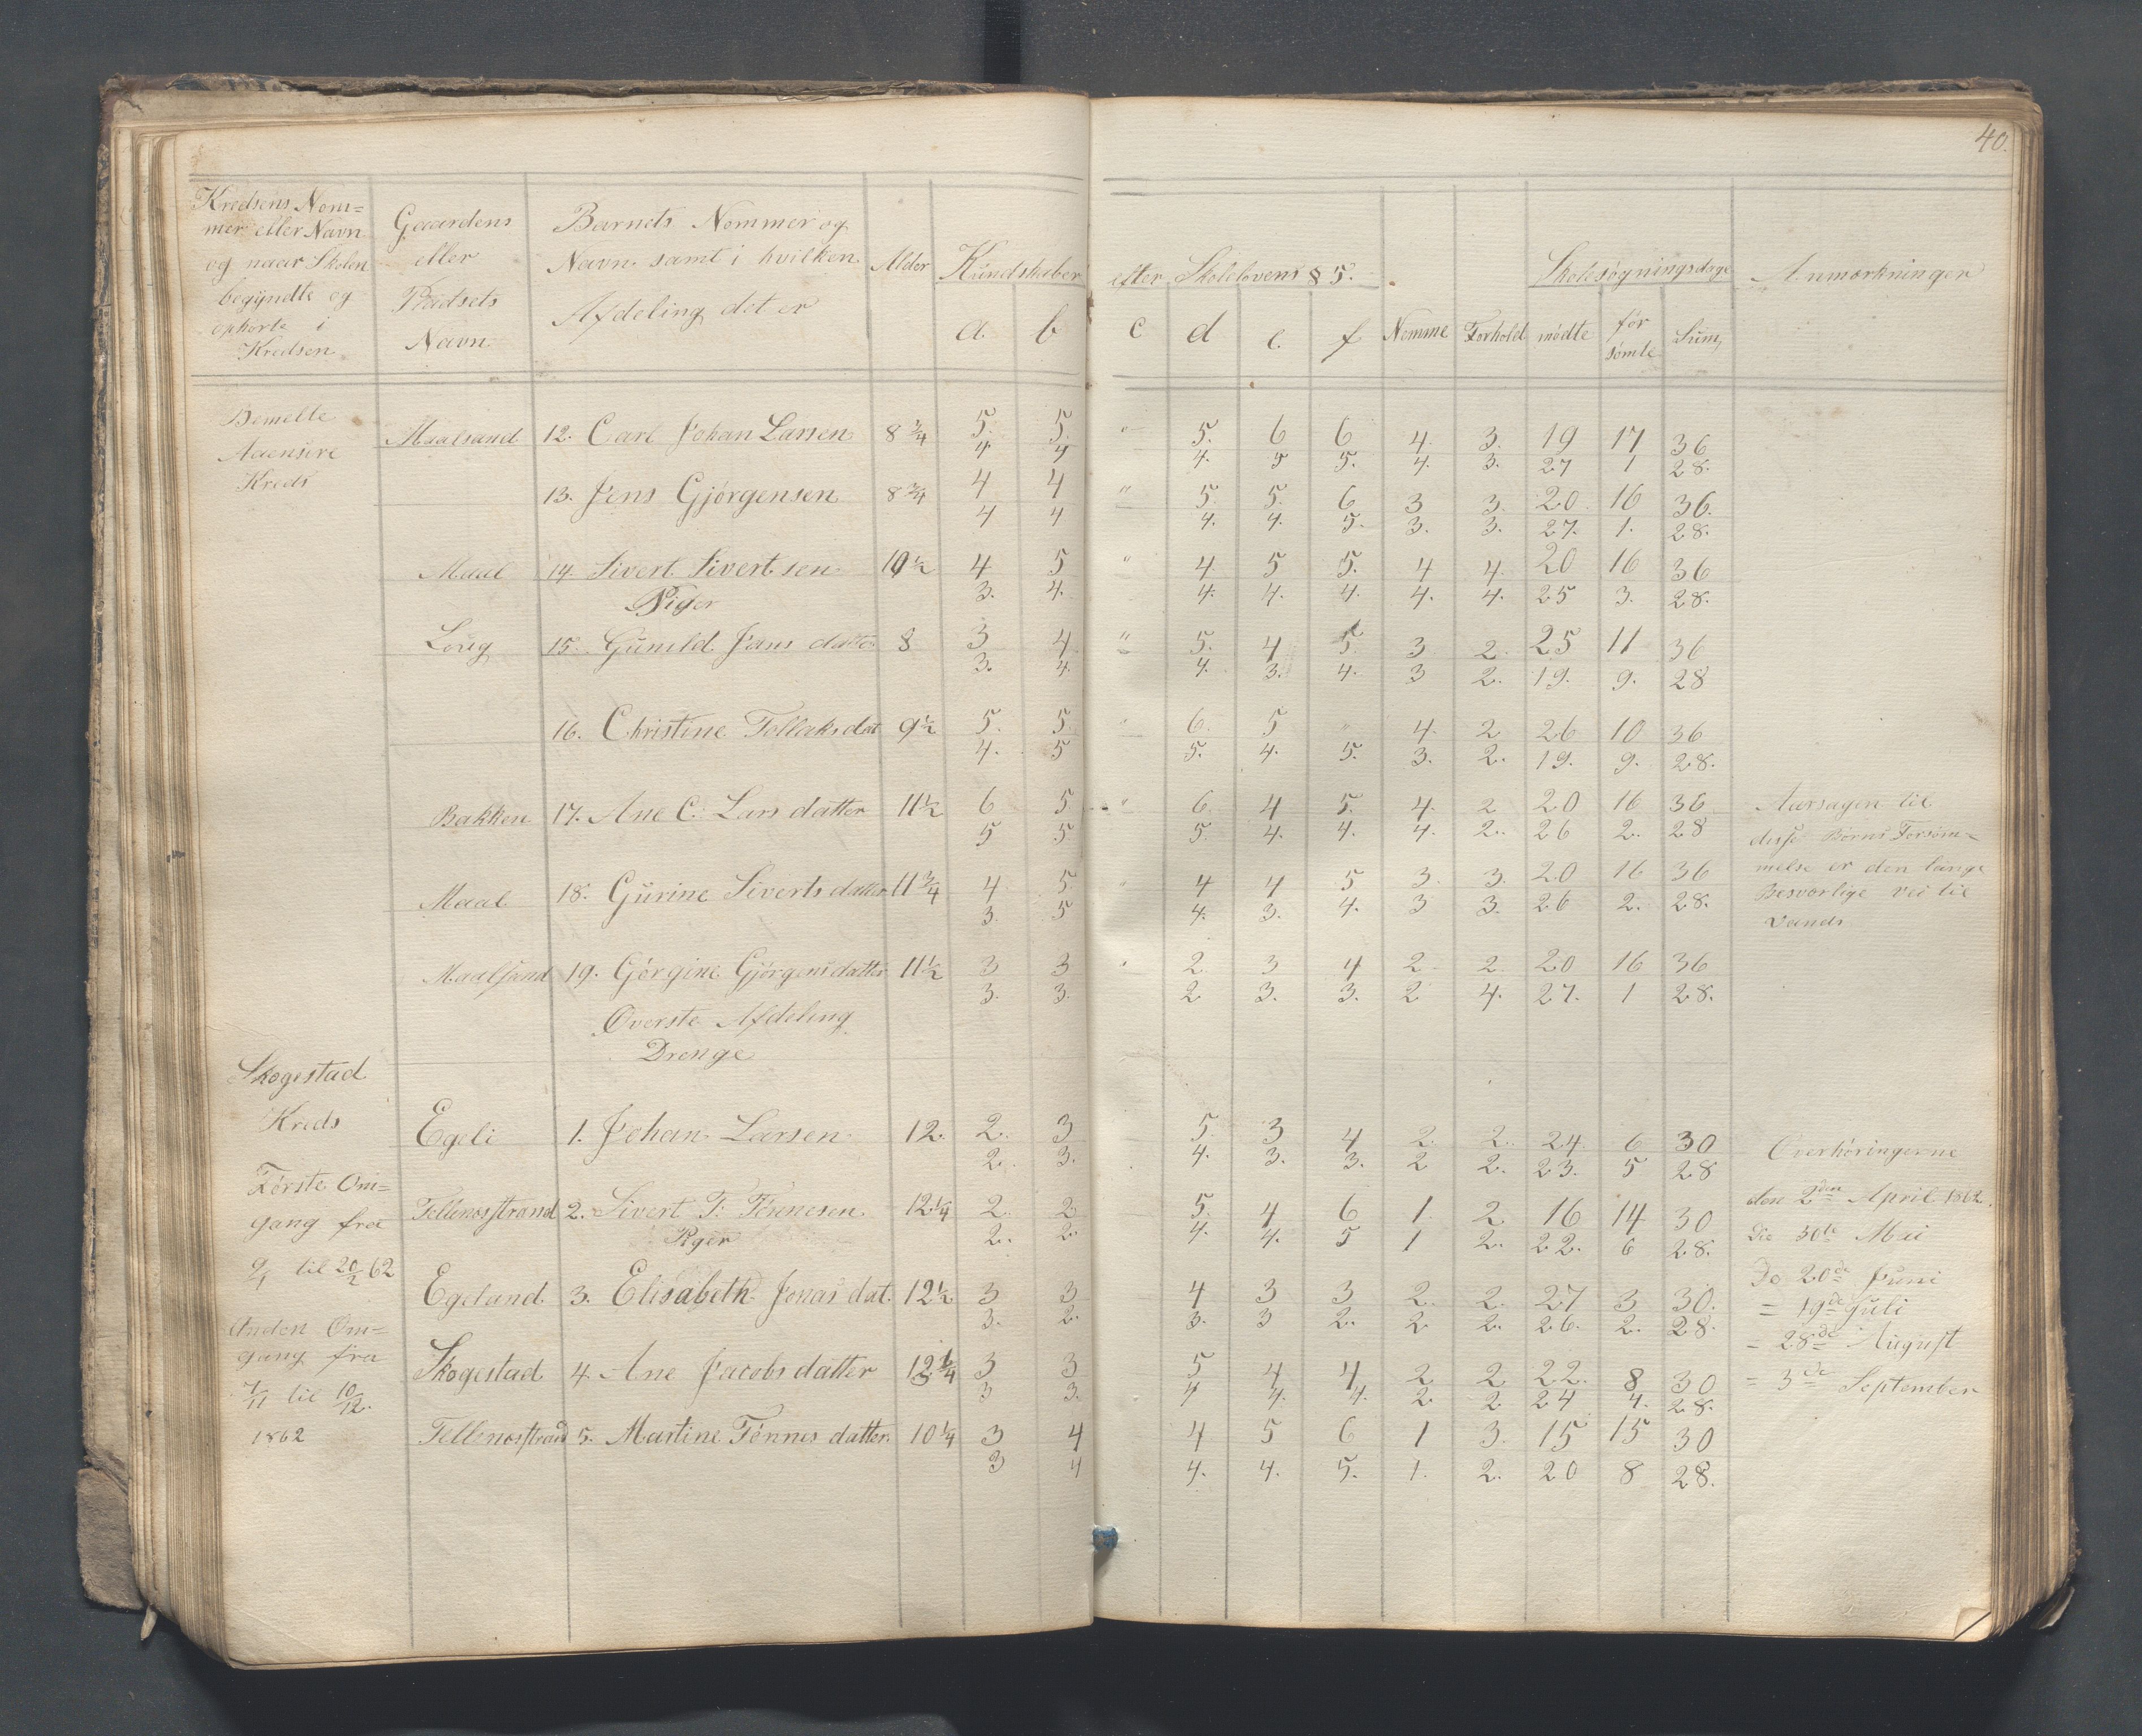 40.
Kredsens Nom=
mer eller Navn
og naar Skolen
begyndte og
ophorte i
Kredsen
Gaardens
eller
Pladsets
Navn
Barnets Nommer og
Navn samt i hvilken
Afdeling det er
Alder
Kundskaber efter Skolelovens § 5.
a. b c d e. f Nemme Forhold
Skolesøgningsdage
mødte for sømte Sum,
Anmærkninger
Bemelte
Aaensire
Kreds
Maalsand 12. Carl Johan Larsen 8 3/4 5. 5. " 5. 6 6 4. 3. 19 17 36
4 4 4. 5 5. 4. 3. 27 1 28.
13. Jens Gjørgensen 8 3/4 4 4 " 5. 5. 6 3 3. 20 16 36.
4 4 4. 4. 5. 3. 3. 27. 1. 28.
Maal 14. Sivert Sivertsen 10 1/2 4 5 " 4 5 5. 4 4. 20 16 36
3. 4. 4. 4. 4. 4. 4. 25 3. 28.
Piger
Loug 15. Gunild Jans datter 8 3 4 " 5. 4 5. 3 2. 25 11 36
3. 4. 4. 3. 4. 3 2. 19. 9. 28
16. Christine Tollaksdat 9 1/2 5. 5. " 6. 5 " 4. 2 26 10 36
4. 5 5. 4. 5. 3. 2. 19. 9. 28.
Bakken 17. Ane C. Lars datter 11 1/2 6 5 " 6. 4 5. 4. 2 20 16 36
5 5. 5. 4. 4. 4. 2. 26 2. 28
Maal 18. Gurine Siverts datter 11 3/4 4 5 " 4 4 5 3. 3. 20 16 36
3. 5 4. 3. 4. 3 3. 26 2. 28.
Aarsagen til
disse Børns Forsøm=
melse er den lange
Besværlige vei til
Vands
Maalsand 19. Gørgine Gjørgensdatter 11 1/2 3 3 " 2 3 4 2. 2. 20 16 36
3. 3. 2 3. 3. 2 4. 27. 1 28.
Øverste Afdeling
Drenge
Skogestad
Kreds
Første Om=
gang fra
9/1 til 20/2 62
Anden Om=
gang fra
7/11 til 10/12.
1862
Egeli 1. Johan Larsen 12. 2. 3 5. 3 4 2. 2. 24 6 30
2. 3. 4. 3. 3. 2 2. 23. 5 28
Tellenesstrand 2. Sivert T. Tønnesen 12 1/4 2. 2 5. 4 6 1. 2 16 14 30
2. 2. 4. 4. 5 1 2. 22. 6 28.
Piger
Egeland 3. Elisabeth Jonas dat. 12 1/2 3 3 4 3 3 2. 2. 27 3 30.
3. 2. 3. 3 2. 2 2. 26. 2. 28.
Skogestad 4. Ane Jacobs datter 12 1/4 3 3 5 4 4 2 2 22. 8 30
3 3. 4 4. 4. 2 2 24 4. 28.
Tellenesstrand 5. Martine Tønnes datter. 10 1/4 3 4 4 5 6 1 3. 15 15 30
3 4 4. 4. 5. 1. 2. 20 8 28.
Overhøringerne
den 2den April 1862.
Do 30te Mai
Do 20de Juni
= 19de Juli
= 28de August
= 3de September